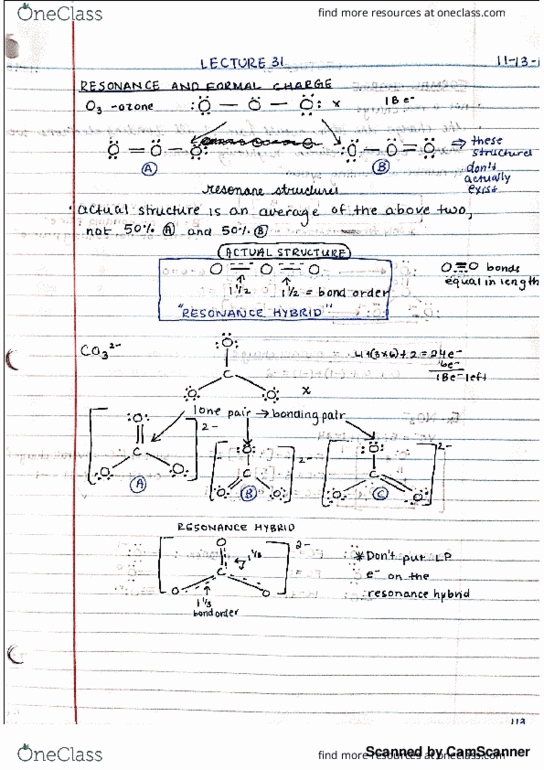 OneClass
find more resources at oneclass.com
LECTURE 31
11-13-
RESONANCE AND FORMAL CHARGE
O3 -ozone :O — O — O: x 18 e-
O = O — O
:O — O = O
⇒ these
structures
don't
actually
exist
A
B
resonane structures
• actual structure is an average of the above two,
not 50% A and 50% B
ACTUAL STRUCTURE
O = O = O
1 1/2 1 1/2 = bond order
"RESONANCE HYBRID"
O = O bonds
equal in length
CO3 2-
:O:
C
:O: :O: x
4+(3×6)+2 = 24e-
6e-
18e- left
lone pair → bonding pair
:O:
C
O O
2-
A
:O:
C
O O
2-
B
:O:
C
O O
2-
C
RESONANCE HYBRID
O
C
O O
2-
1 1/3
1 1/3
bond order
* Don't put LP
e- on the
resonance hybrid
113
OneClass
find more resources at oneclass.com
Scanned by CamScanner